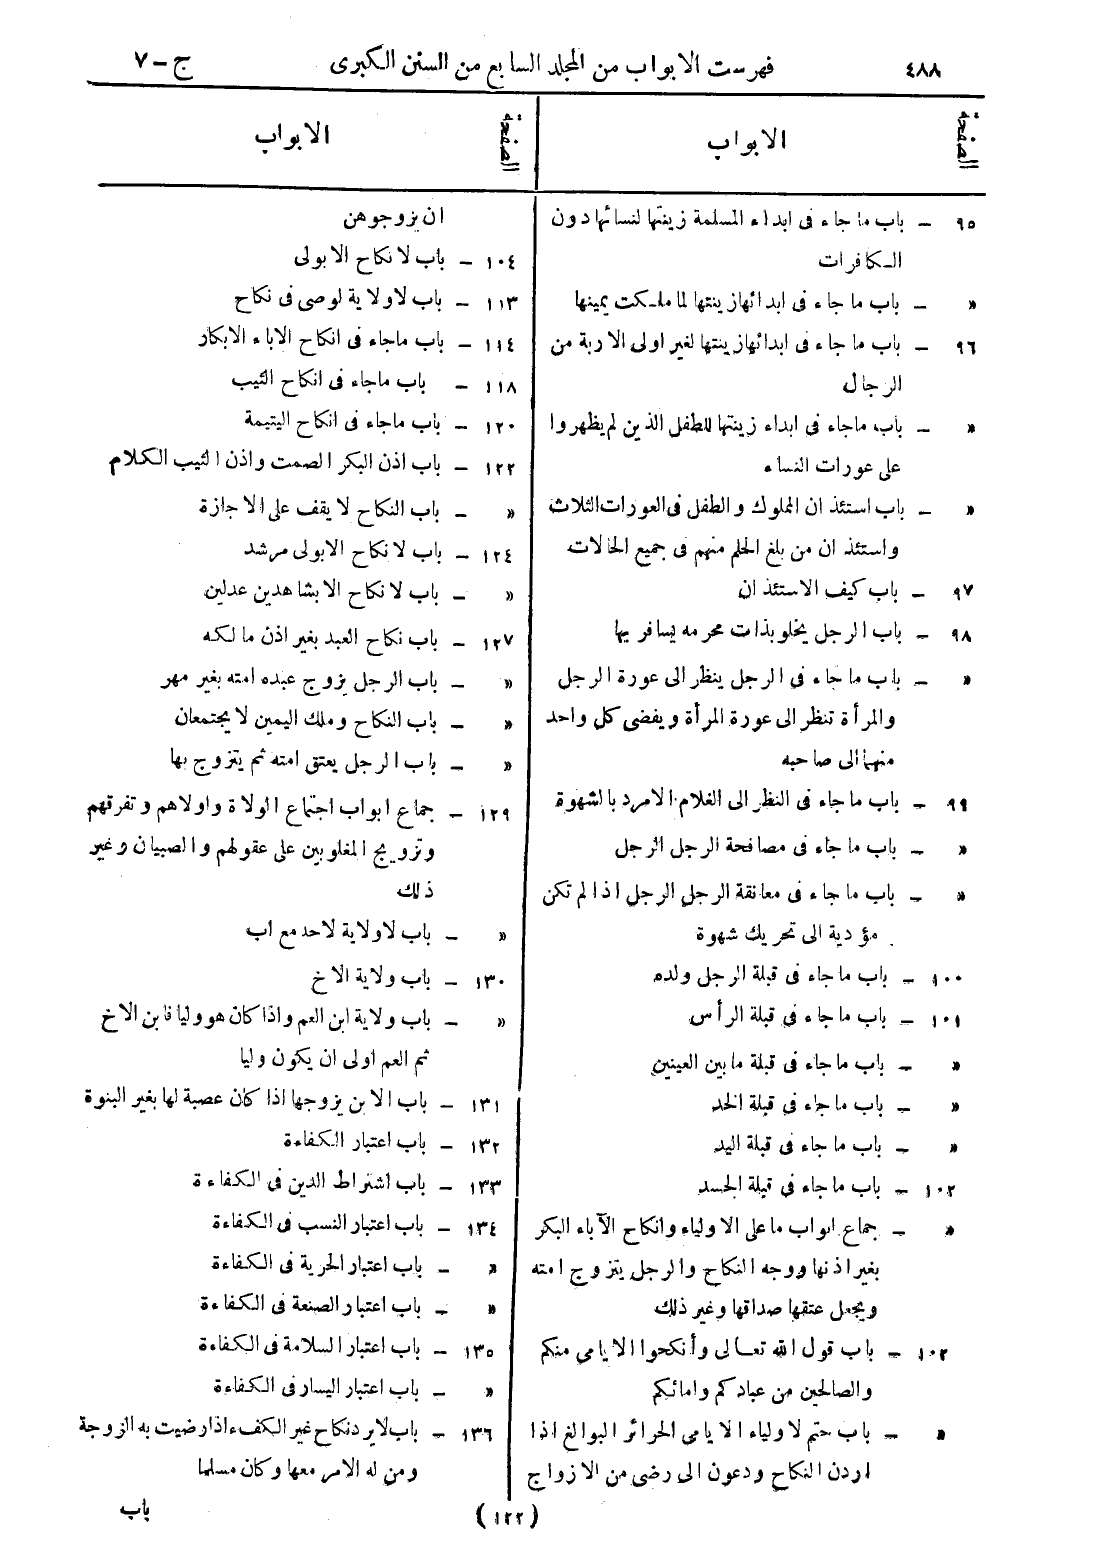 ٤٨٨ فهرست الابواب من المجلد السابع من السنن الكبرى ج-٧
الصفحة الابواب
٩٥ - باب ما جاء فى ابداء المسلمة زينتها لنسائها دون
الكافرات
« - باب ما جاء فى ابدائها زينتها لما ملكت يمينها
٩٦ - باب ما جاء فى ابدائها زينتها لغير اولى الاربة من
الرجال
« - باب ماجاء فى ابداء زينتها للطفل الذين لم يظهروا
على عورات النساء
« - باب استئذان المملوك والطفل فى العورات الثلاث
واستئذان من بلغ الحلم منهم فى جميع الحالات
٩٧ - باب كيف الاستئذان
٩٨ - باب الرجل يخلو بذات محرمه يسافر بها
« - باب ما جاء فى الرجل ينظر الى عورة الرجل
والمرأة تنظر الى عورة المرأة ويفضى كل واحد
منهما الى صاحبه
٩٩ - باب ما جاء فى النظر الى الغلام الامرد بالشهوة
« - باب ما جاء فى مصافحة الرجل الرجل
« - باب ما جاء فى معانقة الرجل الرجل اذا لم تكن
مؤدية الى تحريك شهوة
١٠٠ - باب ما جاء فى قبلة الرجل ولده
١٠١ - باب ما جاء فى قبلة الرأس
« - باب ما جاء فى قبلة ما بين العينين
« - باب ما جاء فى قبلة الخد
« - باب ما جاء فى قبلة اليد
١٠٢ - باب ما جاء فى قبلة الجسد
« - جماع ابواب ما على الاولياء وانكاح الآباء البكر
بغير اذنها ووجه النكاح والرجل يتزوج امته
ويجعل عتقها صداقها وغير ذلك
١٠٢ - باب قول الله تعالى وأنكحوا الايامى منكم
والصالحين من عبادكم وامائكم
« - باب حتم لاولياء الايامى الحرائر البوالغ اذا
اردن النكاح ودعون الى رضى من الازواج
الصفحة الابواب
ان يزوجوهن
١٠٤ - باب لا نكاح الا بولى
١١٣ - باب لا ولاية لوصى فى نكاح
١١٤ - باب ماجاء فى انكاح الاباء الابكار
١١٨ - باب ماجاء فى انكاح الثيب
١٢٠ - باب ماجاء فى انكاح اليتيمة
١٢٢ - باب اذن البكر الصمت واذن الثيب الكلام
« - باب النكاح لا يقف على الاجازة
١٢٤ - باب لا نكاح الا بولى مرشد
« - باب لا نكاح الا بشاهدين عدلين
١٢٧ - باب نكاح العبد بغير اذن مالكه
« - باب الرجل يزوج عبده امته بغير مهر
« - باب النكاح وملك اليمين لا يجتمعان
« - باب الرجل يعتق امته ثم يتزوج بها
١٢٩ - جماع ابواب اجتماع الولاة واولاهم وتفرقهم
وتزويج المغلوبين على عقولهم والصبيان وغير
ذلك
« - باب لا ولاية لاحد مع اب
١٣٠ - باب ولاية الاخ
« - باب ولاية ابن العم واذا كان هو وليا فابن الاخ
ثم العم اولى ان يكون وليا
١٣١ - باب الابن يزوجها اذا كان عصبة لها بغير البنوة
١٣٢ - باب اعتبار الكفاءة
١٣٣ - باب اشتراط الدين فى الكفاءة
١٣٤ - باب اعتبار النسب فى الكفاءة
« - باب اعتبار الحرية فى الكفاءة
« - باب اعتبار الصنعة فى الكفاءة
١٣٥ - باب اعتبار السلامة فى الكفاءة
« - باب اعتبار اليسار فى الكفاءة
١٣٦ - باب لا يرد نكاح غير الكفء اذا رضيت به الزوجة
ومن له الامر معها وكان مسلما
(١٢٢) باب